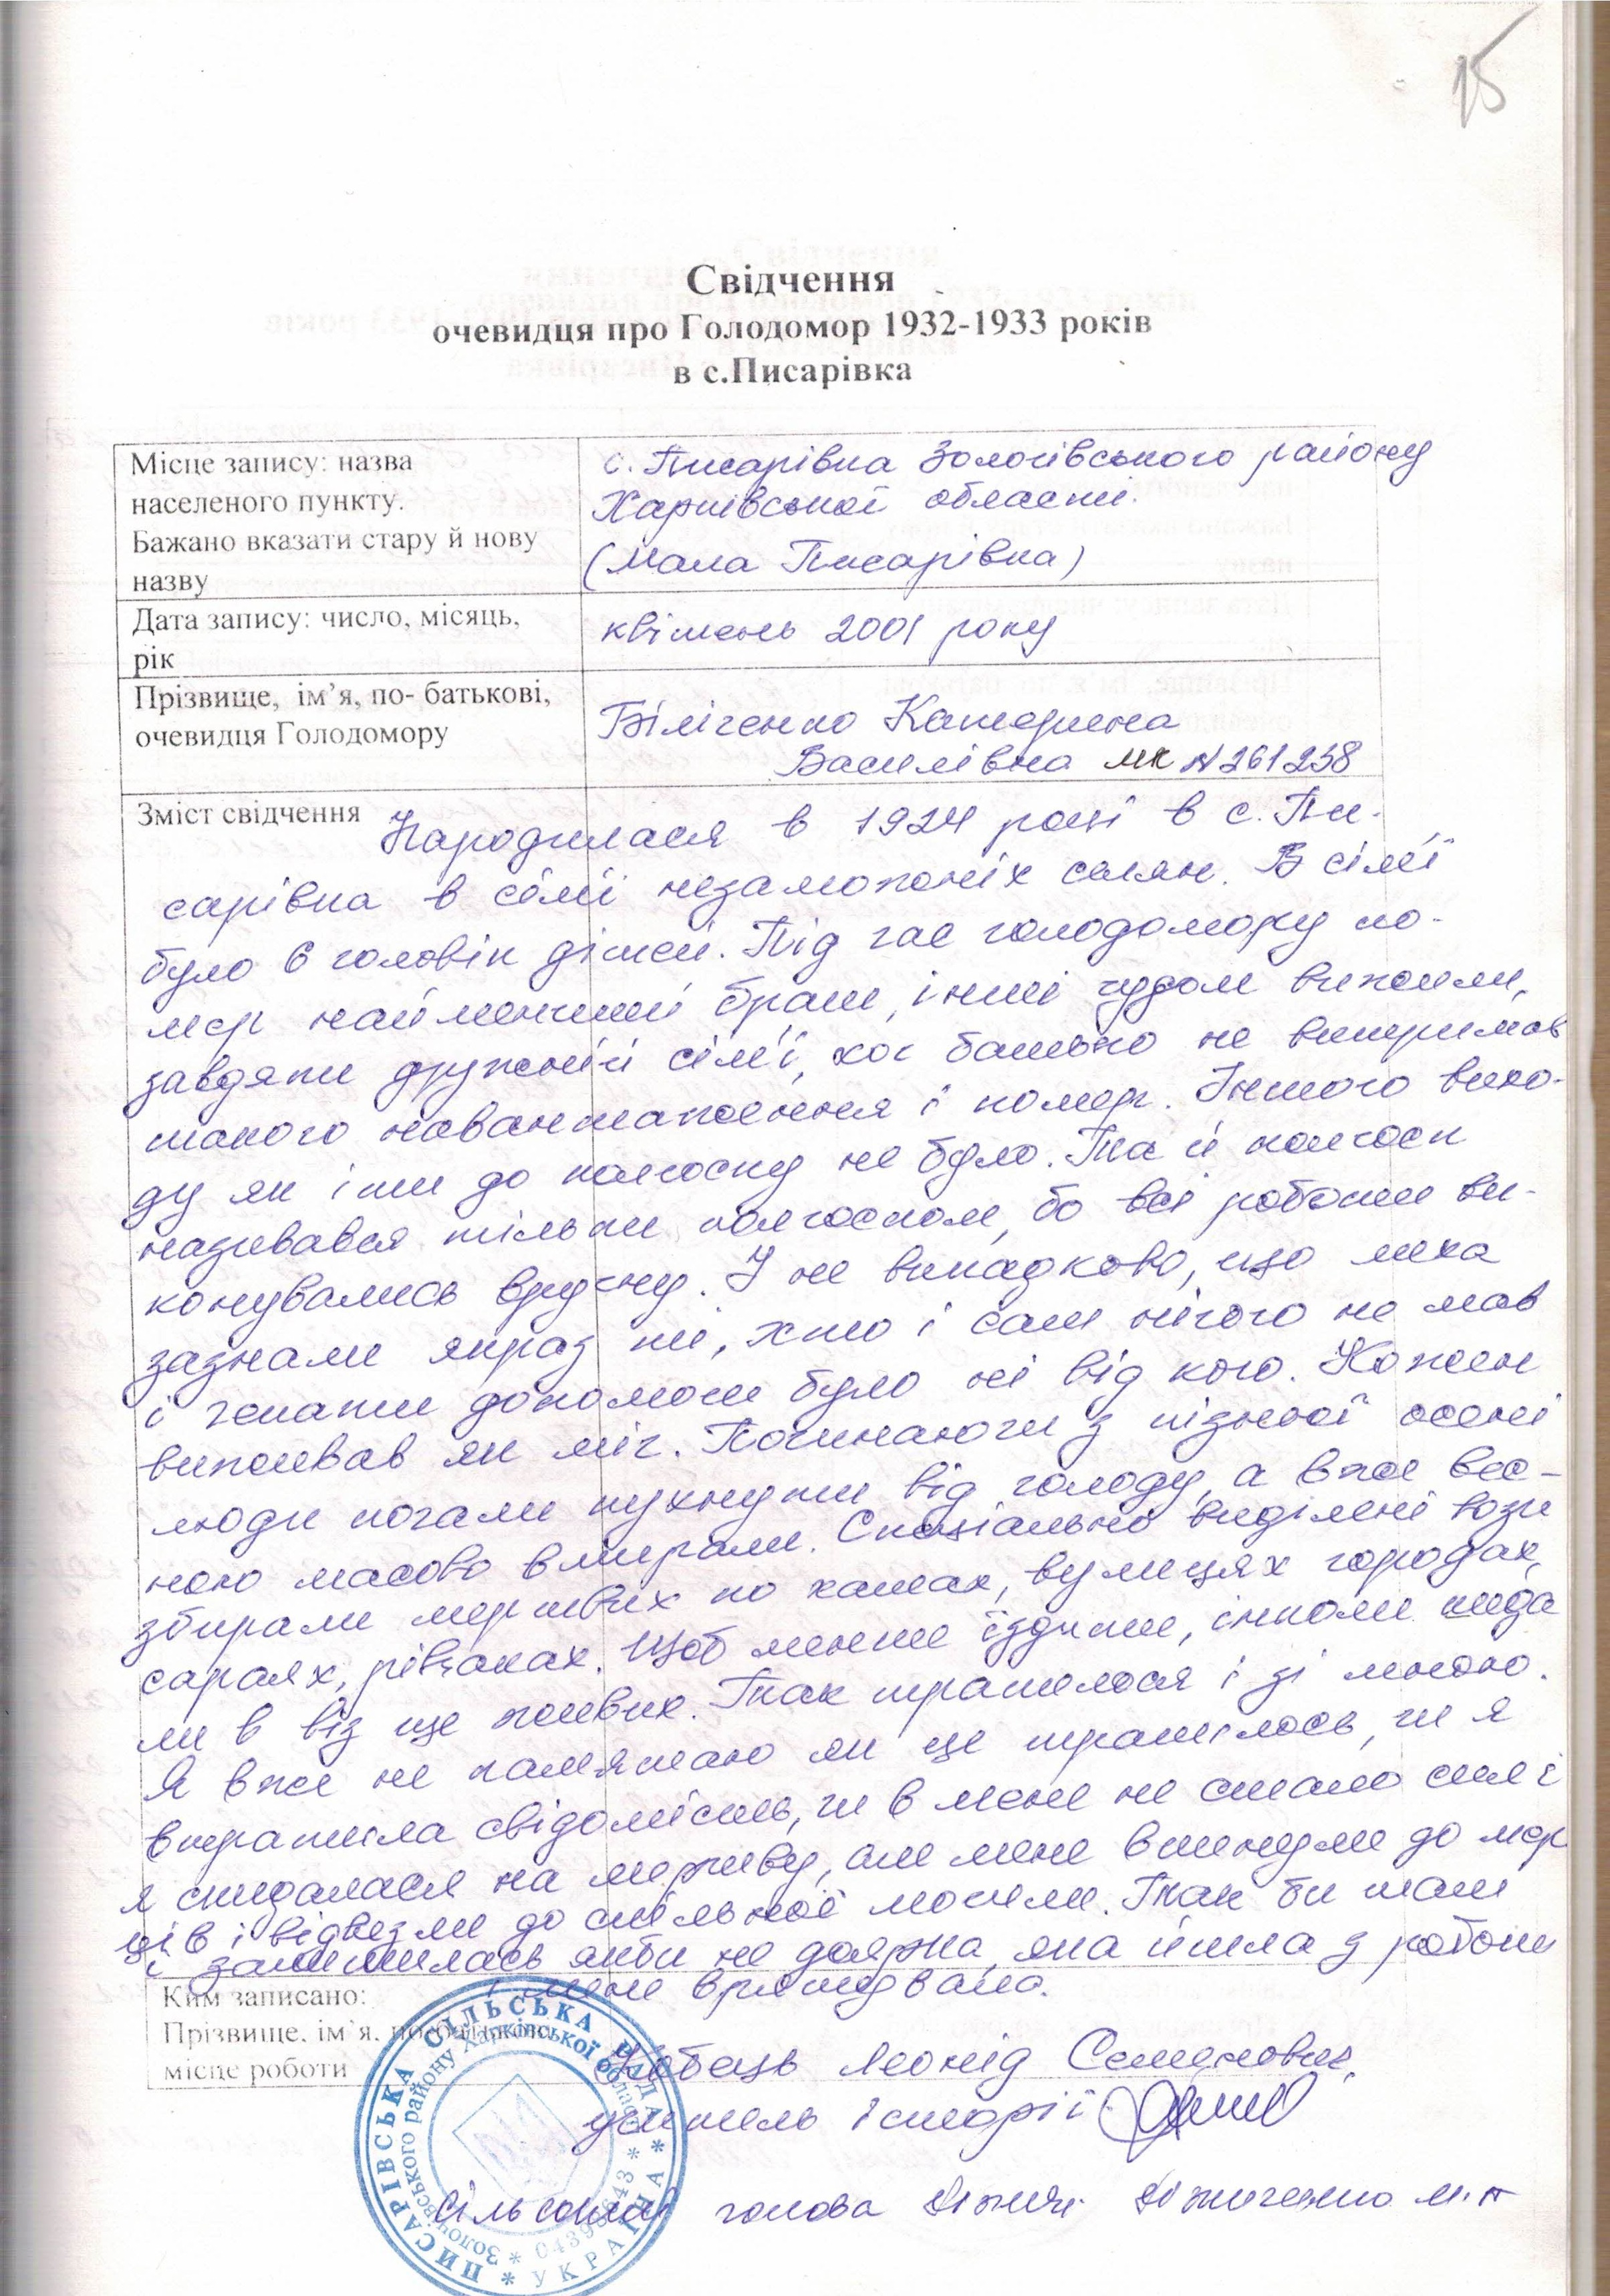 15
Свідчення
очевидця про Голодомор 1932-1933 років
в с.Писарівка
Місце запису: назва
населеного пункту.
Бажано вказати стару й нову
назву
с. Писарівка Золочівського району
Харківської області.
(Мала Писарівка)
Дата запису: число, місяць,
рік
квітень 2001 року
Прізвище, ім’я, по- батькові,
очевидця Голодомору
Біліченко Катерина
Василівна МК N 261258
Зміст свідчення
Народилася в 1924 році в с. Пи-
сарівка в сімї незаможніх селян. В сімї
було 6 чоловік дітей. Під час голодомору по-
мер найменший брат, інші чудом вижили,
завдяки дружній сімї, хоч батько не витримав
такого навантаження і помер. Іншого вихо-
ду як іти до колгоспу не було. Та й колгосп
називався тільки колгоспом, бо всі роботи ви-
конувались вручну. І не випадково, що лиха
зазнали якраз ті, хто і сам нічого не мав
і чекати допомоги було ні від кого. Кожен
виживав як міг. Починаючи з пізньої осені
люди почали пухнути від голоду, а вже вес-
ною масово вмирали. Спеціально виділені вози
збирали мертвих по хатах, вулицях городах,
сараях, рівчаках. Щоб менше їздити, інколи кида
ли в віз ще живих. Так трапилося і зі мною.
Я вже не памятаю як це трапилось, чи я
втратила свідомість, чи в мене не стало сил і
я скидалася на мертву, але мене вкинули до мер
ців і відвезли до спільної могили. Так би там
і залишилась якби не доярка, яка йшла з роботи
і мене врятувала.
Ким записано:
Прізвище, ім’я, по-батькові
місце роботи
Леонід Семенович,
учитель історії
Сільський голова
ПИСАРІВСЬКА СІЛЬСЬКА РАДА * УКРАЇНА *
Золочівського району Харківської області